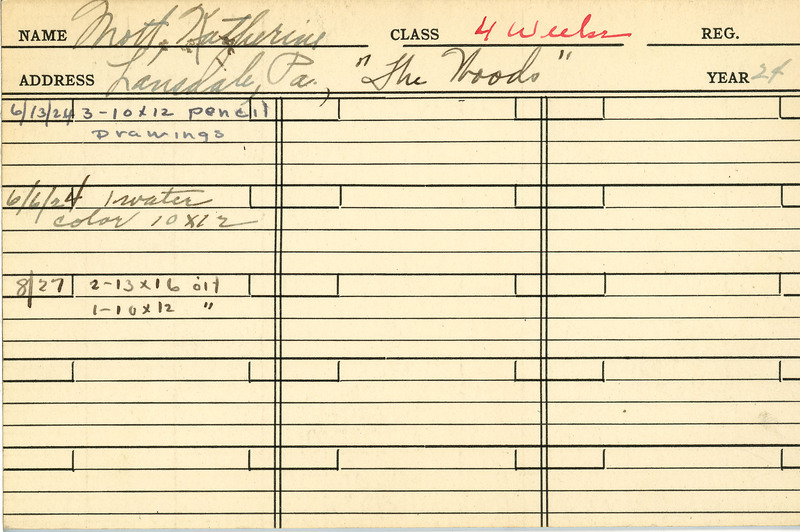 NAME Mott, Katherine CLASS 4 Weeks REG.
ADDRESS Lansdale, Pa., "The Woods" YEAR 24
6/13/24 3-10x12 pencil
Drawings
6/6/24 1-water
color 10x12
8/27 2-13x16 oil
1-10x12 "